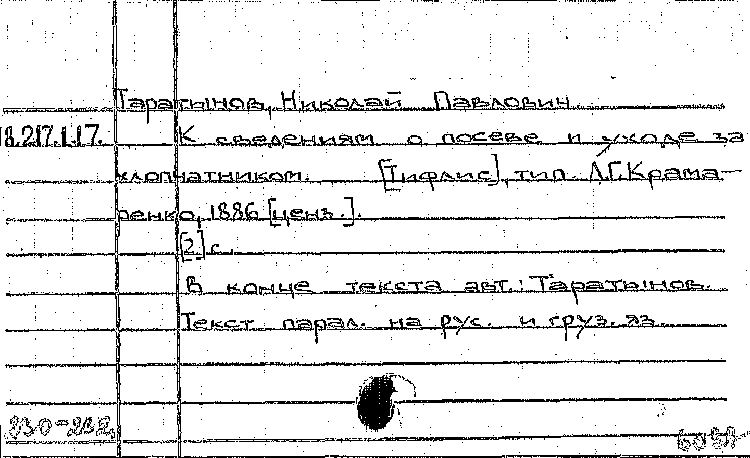 Таратынов, Николай Павлович
18.217.1.17. К сведениям о посеве и уходе за
хлопчатником. [Тифлис], тип. Л.Г. Крама-
ренко, 1886 [ценз.].
[2] с.
В конце текста авт.: Таратынов.
Текст парал. на рус. и груз. яз.